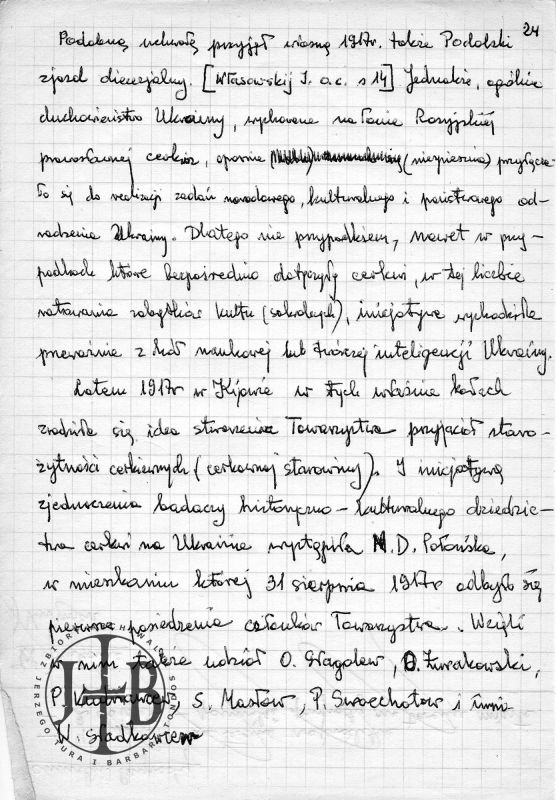 24
Podobną uchwałę przyjął wiosną 1917r. także Podolski
zjazd diecezjalny. [Własowskij I. o.c. s 14] Jednakże, ogólnie
duchowieństwo Ukrainy, wychowane na łonie Rosyjskiej
prawosławnej cerkwi, opornie (niespiesznie) przyłącza-
ło się do realizacji zadań narodowego, kulturalnego i państwowego od-
rodzenia Ukrainy. Dlatego nie przypadkiem, nawet w przy-
padkach które bezpośrednio dotyczyły cerkwi, w tej liczbie
ratowania zabytków kultu (sakralnych), inicjatywa wychodziła
przeważnie z kół naukowej lub twórczej inteligencji Ukrainy.
Latem 1917r w Kijowie w tych właśnie kołach
zrodziła się idea stworzenia Towarzystwa przyjaciół staro-
żytności cerkiewnych (cerkownoj starowiny). I inicjatywą
zjednoczenia badaczy historyczno-kulturalnego dziedzic-
twa cerkwi na Ukrainie wystąpiła N.D. Połońska,
w mieszkaniu której 31 sierpnia 1917r odbyło się
pierwsze posiedzenie członków Towarzystwa. Wzięli
w nim także udział O. Głagolew, O. Żurakowski,
P. S. Masłow, P. i inni
W.
ZBIORY
JERZEGO TURA I BARBARY TONDOS
JTB